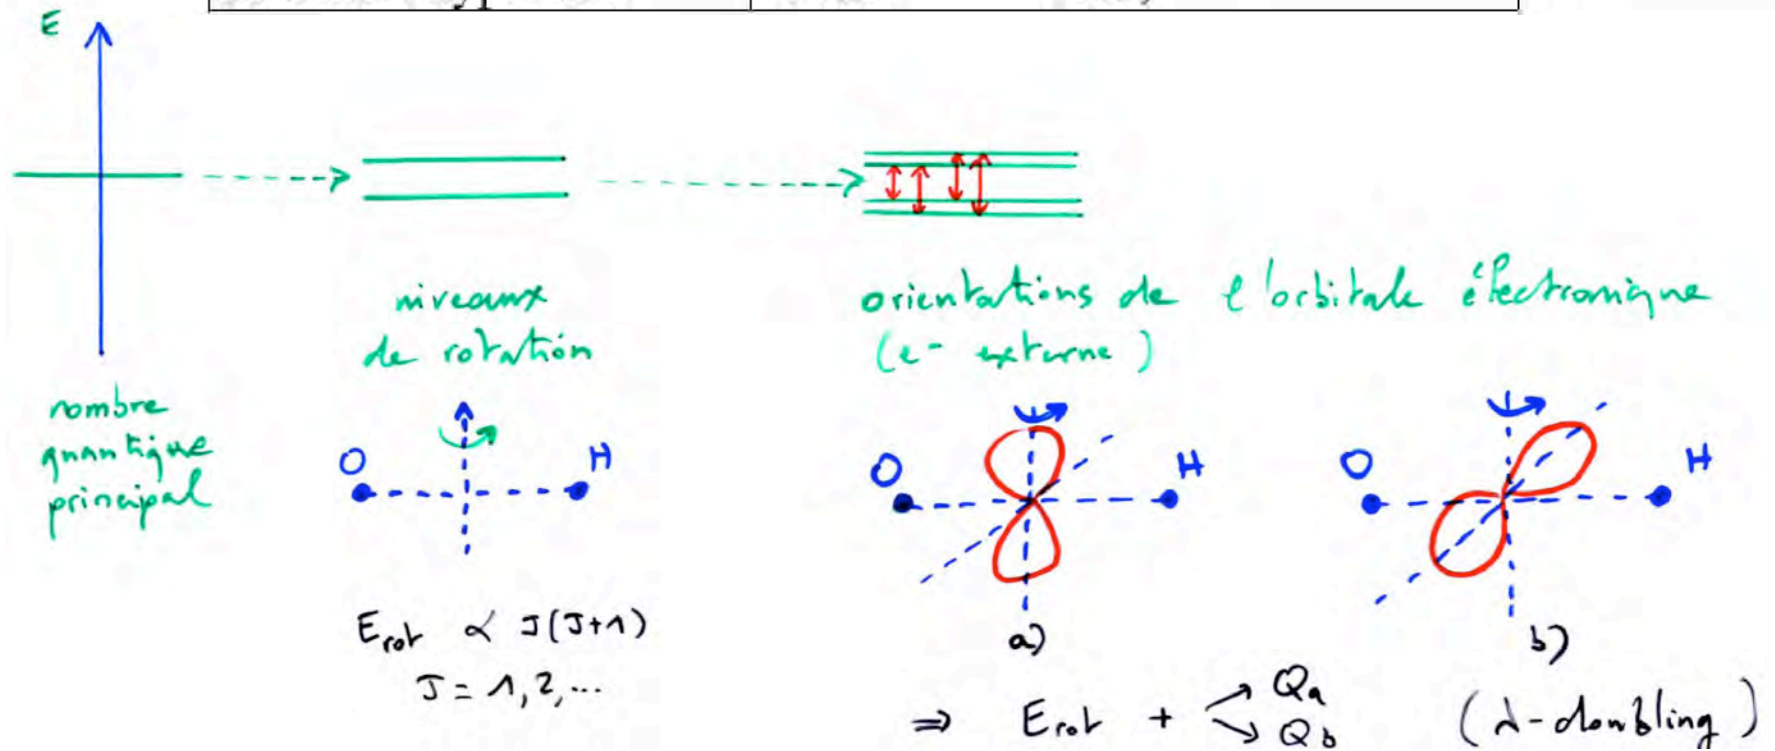 E
niveaux
de rotation
orientations de l'orbitale électronique
(e- externe)
nombre
quantique
principal
O H
O H
O H
a)
b)
E_rot ∝ J(J+1)
J = 1, 2, ...
⇒ E_rot + Qa
Qb
(λ-doubling)